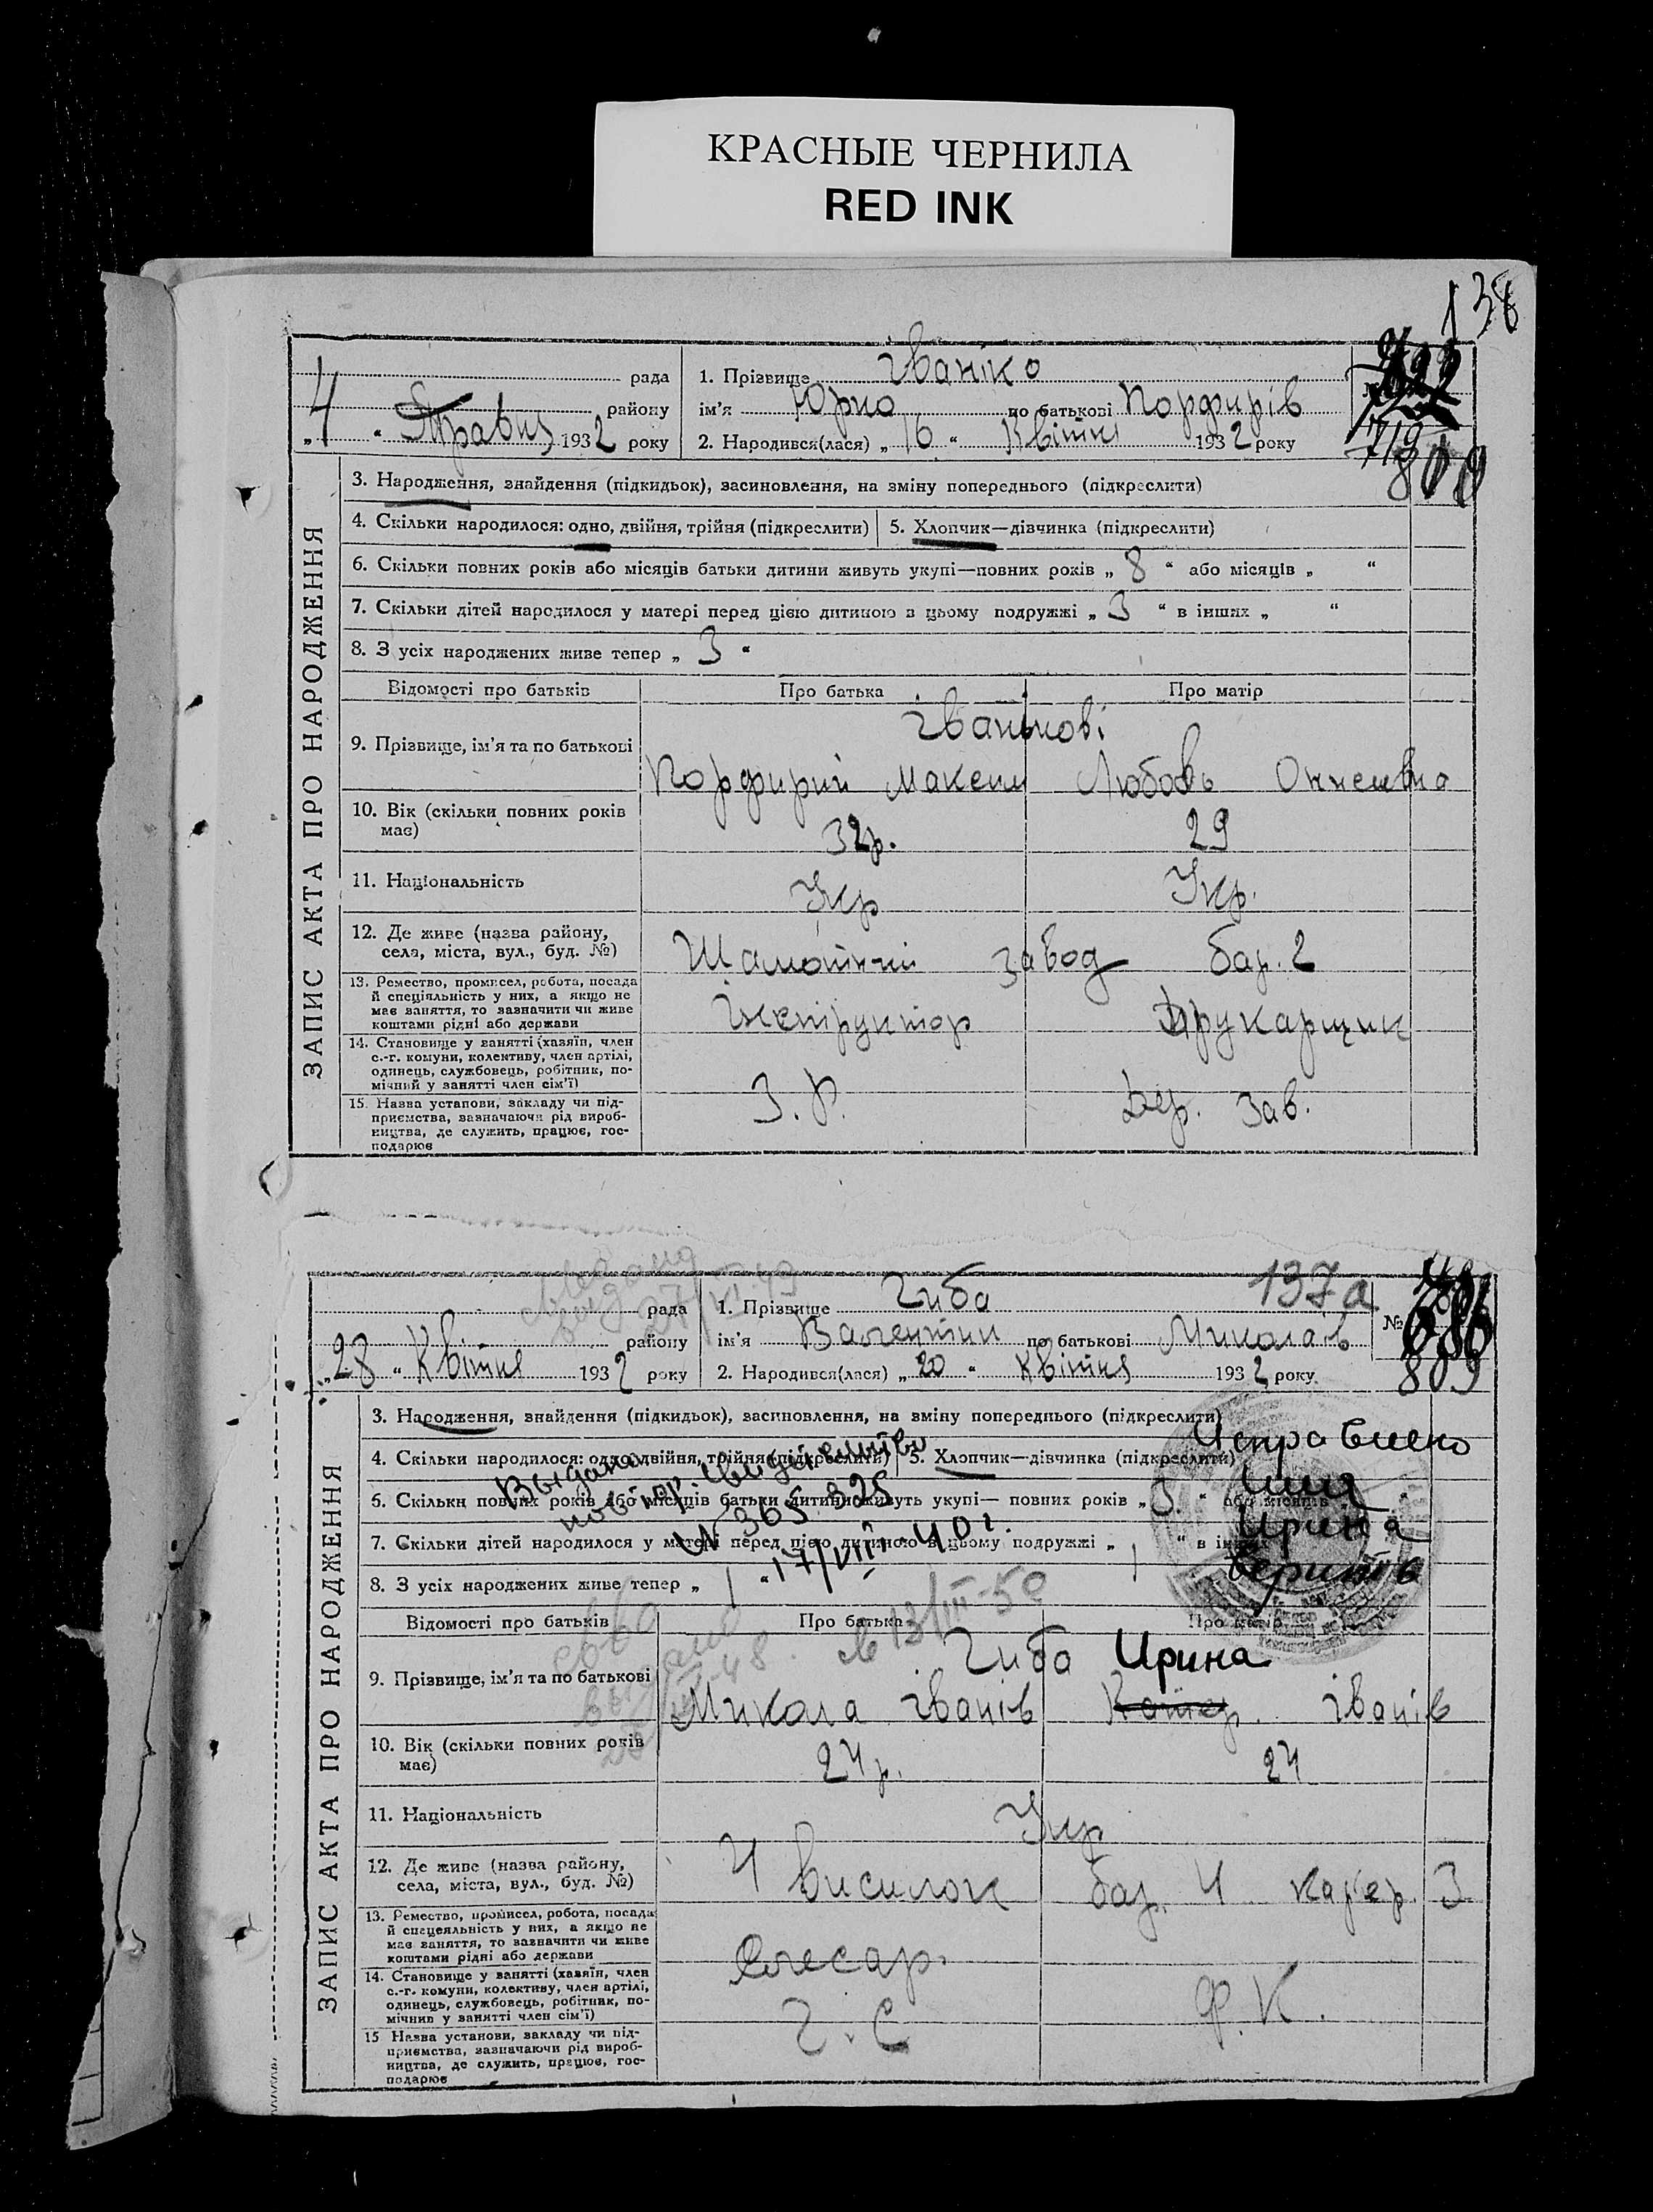 КРАСНЫЕ ЧЕРНИЛА
RED INK
138
рада
району
„4“ Травня 1932 року
1. Прізвище Іваніко
ім'я Юрко по батькові Порфирів
2. Народився(лася) „16“ Квітні 1932 року
№
719
ЗАПИС АКТА ПРО НАРОДЖЕННЯ
3. Народження, знайдення (підкидьок), засиновлення, на зміну попереднього (підкреслити)
4. Скільки народилося: одно, двійня, трійня (підкреслити) 5. Хлопчик—дівчинка (підкреслити)
6. Скільки повних років або місяців батьки дитини живуть укупі—повних років „8“ або місяців „ “
7. Скільки дітей народилося у матері перед цією дитиною в цьому подружжі „3“ в інших „ “
8. З усіх народжених живе тепер „3“
Відомості про батьків Про батька Про матір
Іванікові
9. Прізвище, ім'я та по батькові
Порфирий Максим Любовь
10. Вік (скільки повних років
має)
32р. 29
11. Національність Укр Укр.
12. Де живе (назва району,
села, міста, вул., буд. №)
Шамотний завод бар. 2
13. Ремество, промисел, робота, посада
й спеціяльність у них, а якщо не
має заняття, то зазначити чи живе
коштами рідні або держави
Інструктор
14. Становище у занятті (хазяїн, член
с.-г. комуни, колективу, член артілі,
одинець, службовець, робітник, по-
мічний у занятті член сім'ї)
З. Р. зав.
15. Назва установи, закладу чи під-
приємства, зазначаючи рід вироб-
ництва, де служить, працює, гос-
подарює
137а
рада
району
„28“ Квітня 1932 року
1. Прізвище Гиба
ім'я Валентин по батькові Миколаїв
2. Народився(лася) „20“ Квітня 1932 року
№
809
ЗАПИС АКТА ПРО НАРОДЖЕННЯ
3. Народження, знайдення (підкидьок), засиновлення, на зміну попереднього (підкреслити)
4. Скільки народилося: одно, двійня, трійня (підкреслити) 5. Хлопчик—дівчинка (підкреслити)
6. Скільки повних років або місяців батьки дитини живуть укупі— повних років „3“ або місяців
7. Скільки дітей народилося у матері перед цією дитиною в цьому подружжі „1“ в інших
8. З усіх народжених живе тепер „1“
Выдано
№ 365825
17/VIII-40 г.
Исправлено
имя
Ирина
верить
13/III-50
Відомості про батьків Про батька Про матір
Гиба Ирина
9. Прізвище, ім'я та по батькові
Микола Іванів Катер. Іванів
10. Вік (скільки повних років
має)
24р. 24
11. Національність Укр
12. Де живе (назва району,
села, міста, вул., буд. №)
4 висилок бар. 4 кар'єр. 3
13. Ремество, промисел, робота, посада
й спеціяльність у них, а якщо не
має заняття, то зазначити чи живе
коштами рідні або держави
Слесар.
14. Становище у занятті (хазяїн, член
с.-г. комуни, колективу, член артілі,
одинець, службовець, робітник, по-
мічний у занятті член сім'ї)
Г. С Ф. К.
15 Назва установи, закладу чи під-
приємства, зазначаючи рід вироб-
ництва, де служить, працює, гос-
подарює